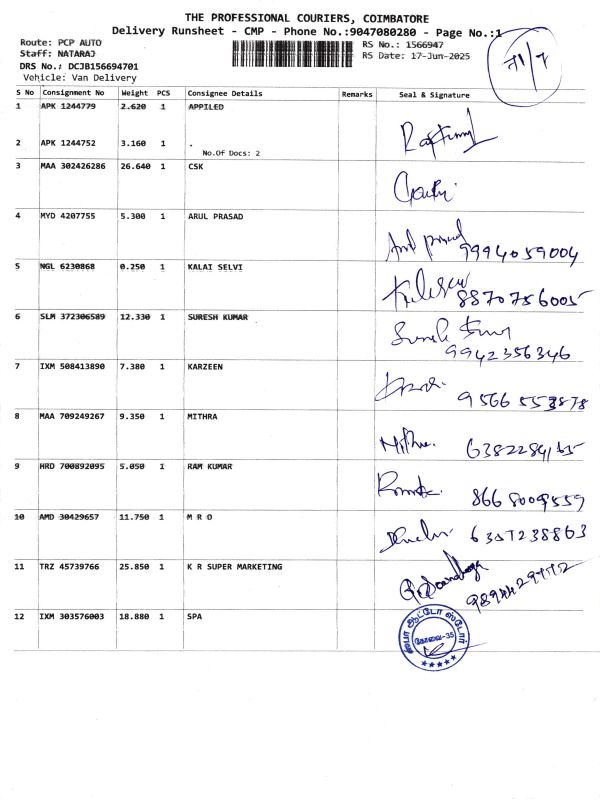 THE PROFESSIONAL COURIERS, COIMBATORE
Delivery Runsheet - CMP - Phone No.:9047080280 - Page No.:1
Route: PCP AUTO
RS No.: 1566947
Staff: NATARAJ
RS Date: 17-Jun-2025
DRS No.: DCJB156694701
Vehicle: Van Delivery
S No Consignment No Weight PCS Consignee Details Remarks Seal & Signature
1 APK 1244779 2.620 1 APPILED
2 APK 1244752 3.160 1 .
No.Of Docs: 2
3 MAA 302426286 26.640 1 CSK
4 MYD 4207755 5.300 1 ARUL PRASAD
9994059004
5 NGL 6230868 0.250 1 KALAI SELVI
8870756005
6 SLM 372306589 12.330 1 SURESH KUMAR
9942356346
7 IXM 508413890 7.380 1 KARZEEN
8 MAA 709249267 9.350 1 MITHRA
9 HRD 700892095 5.050 1 RAM KUMAR
10 AMD 30429657 11.750 1 M R O
11 TRZ 45739766 25.850 1 K R SUPER MARKETING
12 IXM 303576003 18.880 1 SPA
கோவை-35